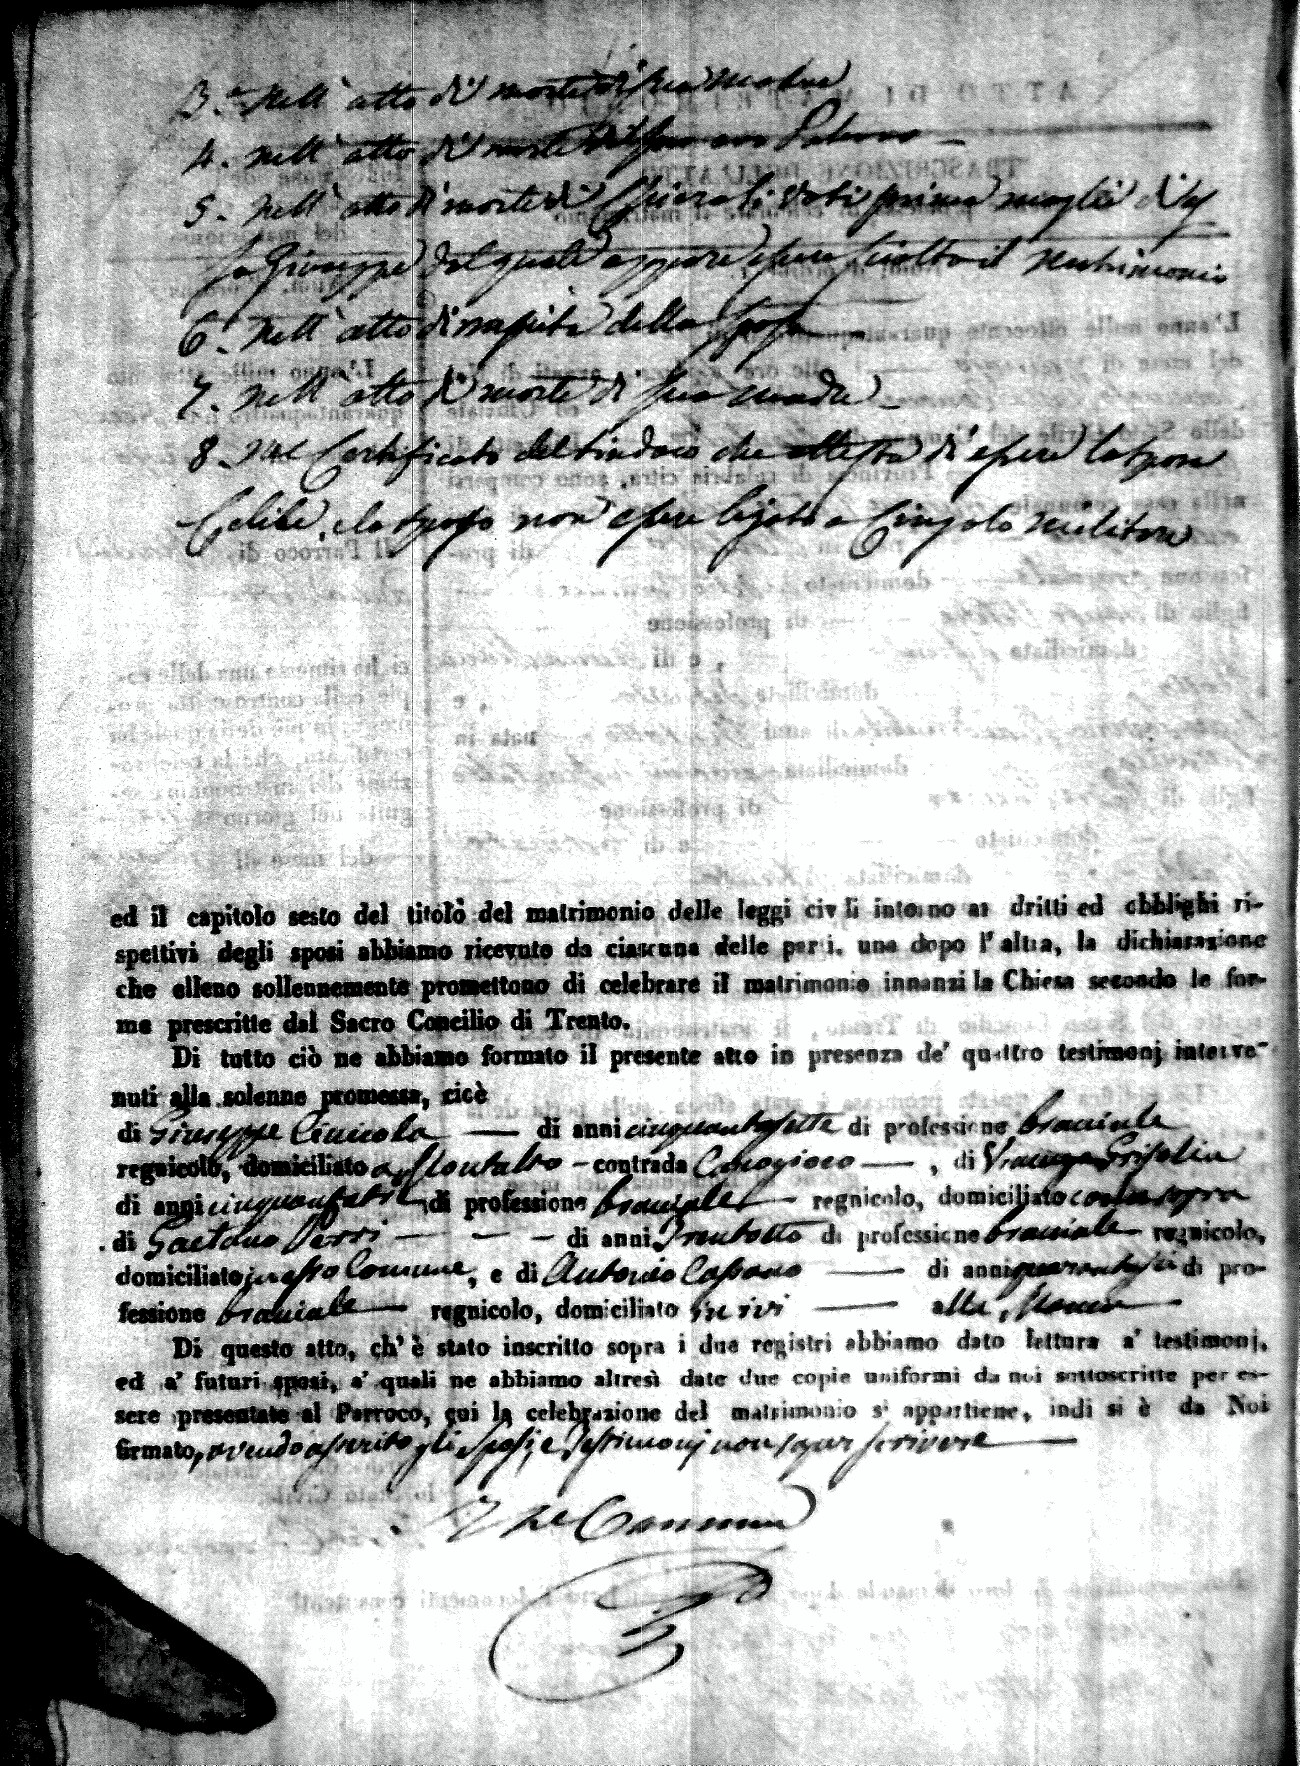 3.° Nell' atto di morte di sua Madre
4. Nell' atto di morte del suo avo Paterno
5. Nell' atto di morte di prima moglie di
Giuseppe dal quale appare essere sciolto il Matrimonio
6. Nell' atto di nascita della sposa
7. Nell' atto di morte di sua madre
8. Nel Certificato del Sindaco che attesta di essere la sposa
Celibe, e lo sposo non essere legato a Cingolo Militare
ed il capitolo sesto del titolo del matrimonio delle leggi civili intorno ai dritti ed obblighi ri-
spettivi degli sposi abbiamo ricevuto da ciascuna delle parti, una dopo l'altra, la dichiarazione
che elleno sollennemente promettono di celebrare il matrimonio innanzi la Chiesa secondo le for-
me prescritte dal Sacro Concilio di Trento.
Di tutto ciò ne abbiamo formato il presente atto in presenza de' quattro testimonj interve-
nuti alla solenne promessa, cioè
di Giuseppe — di anni cinquantasette di professione bracciale
regnicolo, domiciliato a Montalto – contrada — , di Grisolia
di anni di professione bracciale — regnicolo, domiciliato come sopra
di Gaetano Perri — — — di anni Trentotto di professione bracciale regnicolo,
domiciliato in esso Comune, e di Antonio Cassano — di anni quarantasei di pro-
fessione bracciale — regnicolo, domiciliato in ivi — alla
Di questo atto, ch' è stato inscritto sopra i due registri abbiamo dato lettura a' testimonj,
ed a' futuri sposi, a' quali ne abbiamo altresì date due copie uniformi da noi sottoscritte per es-
sere presentate al Parroco, cui la celebrazione del matrimonio si appartiene, indi si è da Noi
firmato, avendo asserito gli sposi, e testimonj non saper scrivere —